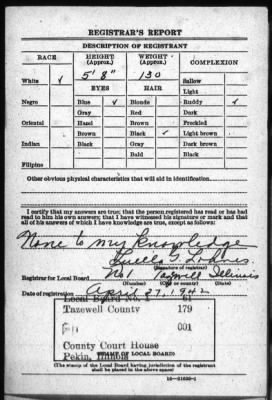 REGISTRAR'S REPORT
DESCRIPTION OF REGISTRANT
RACE HEIGHT (Approx.) WEIGHT (Approx.) COMPLEXION
5' 8" 130
White ✓ Sallow
EYES HAIR Light
Negro Blue ✓ Blonde Ruddy ✓
Gray Red Dark
Oriental Hazel Brown Freckled
Brown Black ✓ Light brown
Indian Black Gray Dark brown
Bald Black
Filipino
Other obvious physical characteristics that will aid in identification
I certify that my answers are true; that the person registered has read or has had
read to him his own answers; that I have witnessed his signature or mark and that
all of his answers of which I have knowledge are true, except as follows:
None to my knowledge
Luella G.
(Signature of registrar)
Registrar for Local Board No 1 Tazewell Illinois
(Number) (City or county) (State)
Date of registration April 27, 1942
Local Board No. 61
Tazewell County 179
001
County Court House
Pekin, Illinois
(STAMP OF LOCAL BOARD)
(The stamp of the Local Board having jurisdiction of the registrant
shall be placed in the above space.)